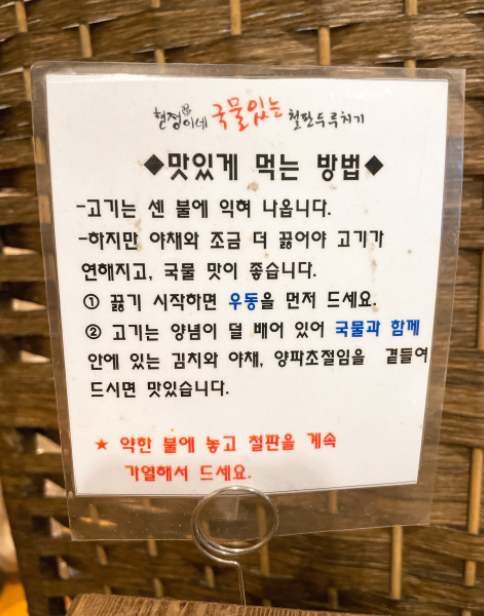 현정이네 국물있는 철판두루치기
◆맛있게 먹는 방법◆
-고기는 센 불에 익혀 나옵니다.
-하지만 야채와 조금 더 끓어야 고기가
연해지고, 국물 맛이 좋습니다.
① 끓기 시작하면 우동을 먼저 드세요.
② 고기는 양념이 덜 배어 있어 국물과 함께
안에 있는 김치와 야채, 양파조절임을 곁들여
드시면 맛있습니다.
★ 약한 불에 놓고 철판을 계속
가열해서 드세요.